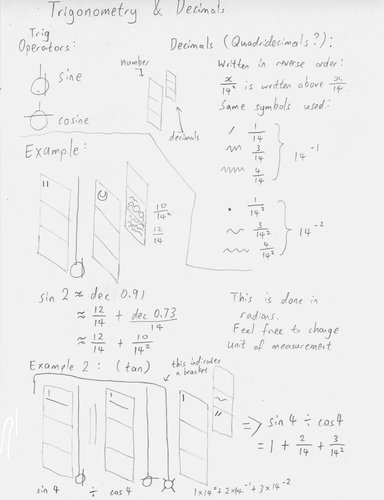 Trigonometry & Decimals
Trig
Operators:
sine
cosine
number
decimals
Decimals (Quadridecimals?):
Written in reverse order:
x/14² is written above x/14.
Same symbols used:
1/14
3/14
4/14
14⁻¹
1/14²
3/14²
4/14²
14⁻²
Example:
10/14²
12/14
sin 2 ≈ dec 0.91
≈ 12/14 + dec 0.73/14
≈ 12/14 + 10/14²
This is done in
radians.
Feel free to change
unit of measurement
Example 2: (tan)
this indicates
a bracket
=> sin 4 ÷ cos 4
= 1 + 2/14 + 3/14²
sin 4 ÷ cos 4
1×14⁰+2×14⁻¹+3×14⁻²